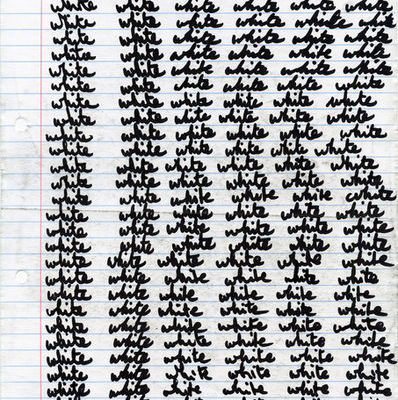 white white white white white white
white white white white white white
white white white white white white
white white white white white white
white white white white white white
white white white white white white
white white white white white white
white white white white white white
white white white white white white
white white white white white white
white white white white white white
white white white white white white
white white white white white white
white white white white white white
white white white white white white
white white white white white white
white white white white white white
white white white white white white
white white white white white white
white white white white white white
white white white white white white
white white white white white white
white white white white white white
white white white white white white
white white white white white white